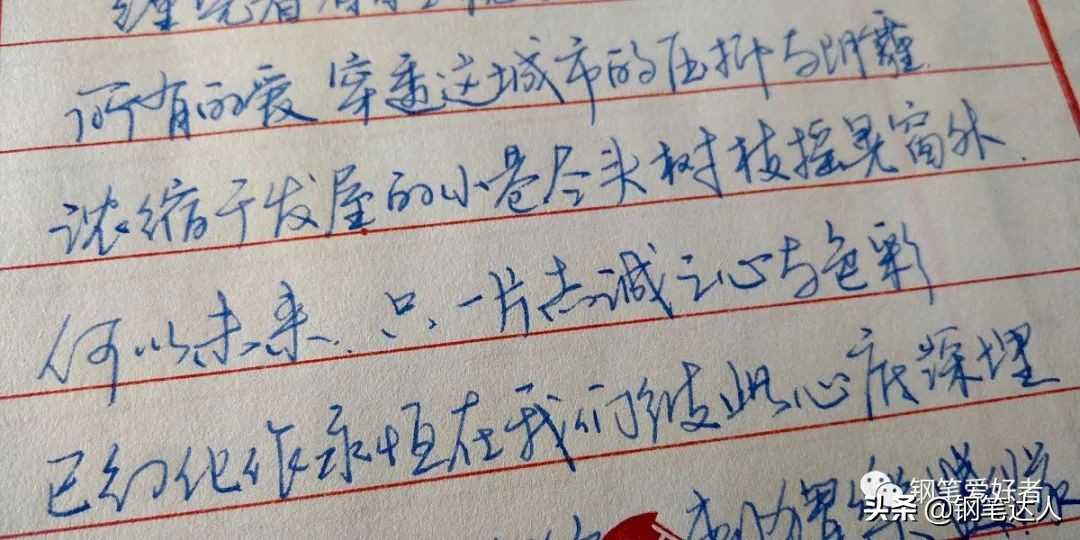 所有的爱 穿透这城市的压抑与阴霾
浓缩于发屋的小巷尽头树枝摇晃窗外
何以未来. 只一片赤诚之心与色彩
已幻化作永恒在我们彼此心底深埋
钢笔爱好者
头条 @钢笔达人